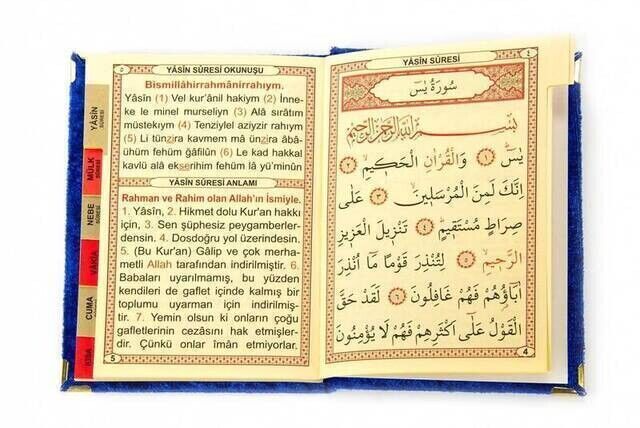 YÂSİN SÛRESİ OKUNUŞU
Bismillâhirrahmânirrahıym.
Yâsîn (1) Vel kur'ânil hakıym (2) İnne-
ke le minel murseliyn (3) Alâ sıratım
müstekıym (4) Tenziylel aziyzir rahıym
(5) Li tünzira kavmem mâ ünzira âbâ-
ühüm fehüm ğâfilûn (6) Le kad hakkal
kavlü alâ ekserihim fehüm lâ yü'minûn
YÂSİN SÛRESİ ANLAMI
Rahman ve Rahim olan Allah'ın İsmiyle.
1. Yâsîn, 2. Hikmet dolu Kur'an hakkı
için, 3. Sen şüphesiz peygamberler-
densin. 4. Dosdoğru yol üzerindesin.
5. (Bu Kur'an) Gâlip ve çok merha-
metli Allah tarafından indirilmiştir. 6.
Babaları uyarılmamış, bu yüzden
kendileri de gaflet içinde kalmış bir
toplumu uyarman için indirilmiş-
tir. 7. Yemin olsun ki onların çoğu
gafletlerinin cezasını hak etmişler-
dir. Çünkü onlar îmân etmiyorlar.
5
YÂSİN
SÛRESİ
MÜLK
SÛRESİ
NEBE
SÛRESİ
VÂKIA
CUMA
KISA
YÂSİN SÛRESİ
٤
سُورَةُ يٰسٓ
بِسْمِ اللّٰهِ الرَّحْمٰنِ الرَّحِيمِ
يٰسٓ ﴿١﴾ وَالْقُرْاٰنِ الْحَكِيمِ ﴿٢﴾
اِنَّكَ لَمِنَ الْمُرْسَلِينَ ﴿٣﴾ عَلٰى
صِرَاطٍ مُسْتَقِيمٍ ﴿٤﴾ تَنْزِيلَ الْعَزِيزِ
الرَّحِيمِ ﴿٥﴾ لِتُنْذِرَ قَوْمًا مَٓا اُنْذِرَ
اٰبَٓاؤُهُمْ فَهُمْ غَافِلُونَ ﴿٦﴾ لَقَدْ حَقَّ
الْقَوْلُ عَلٰٓى اَكْثَرِهِمْ فَهُمْ لَا يُؤْمِنُونَ
4